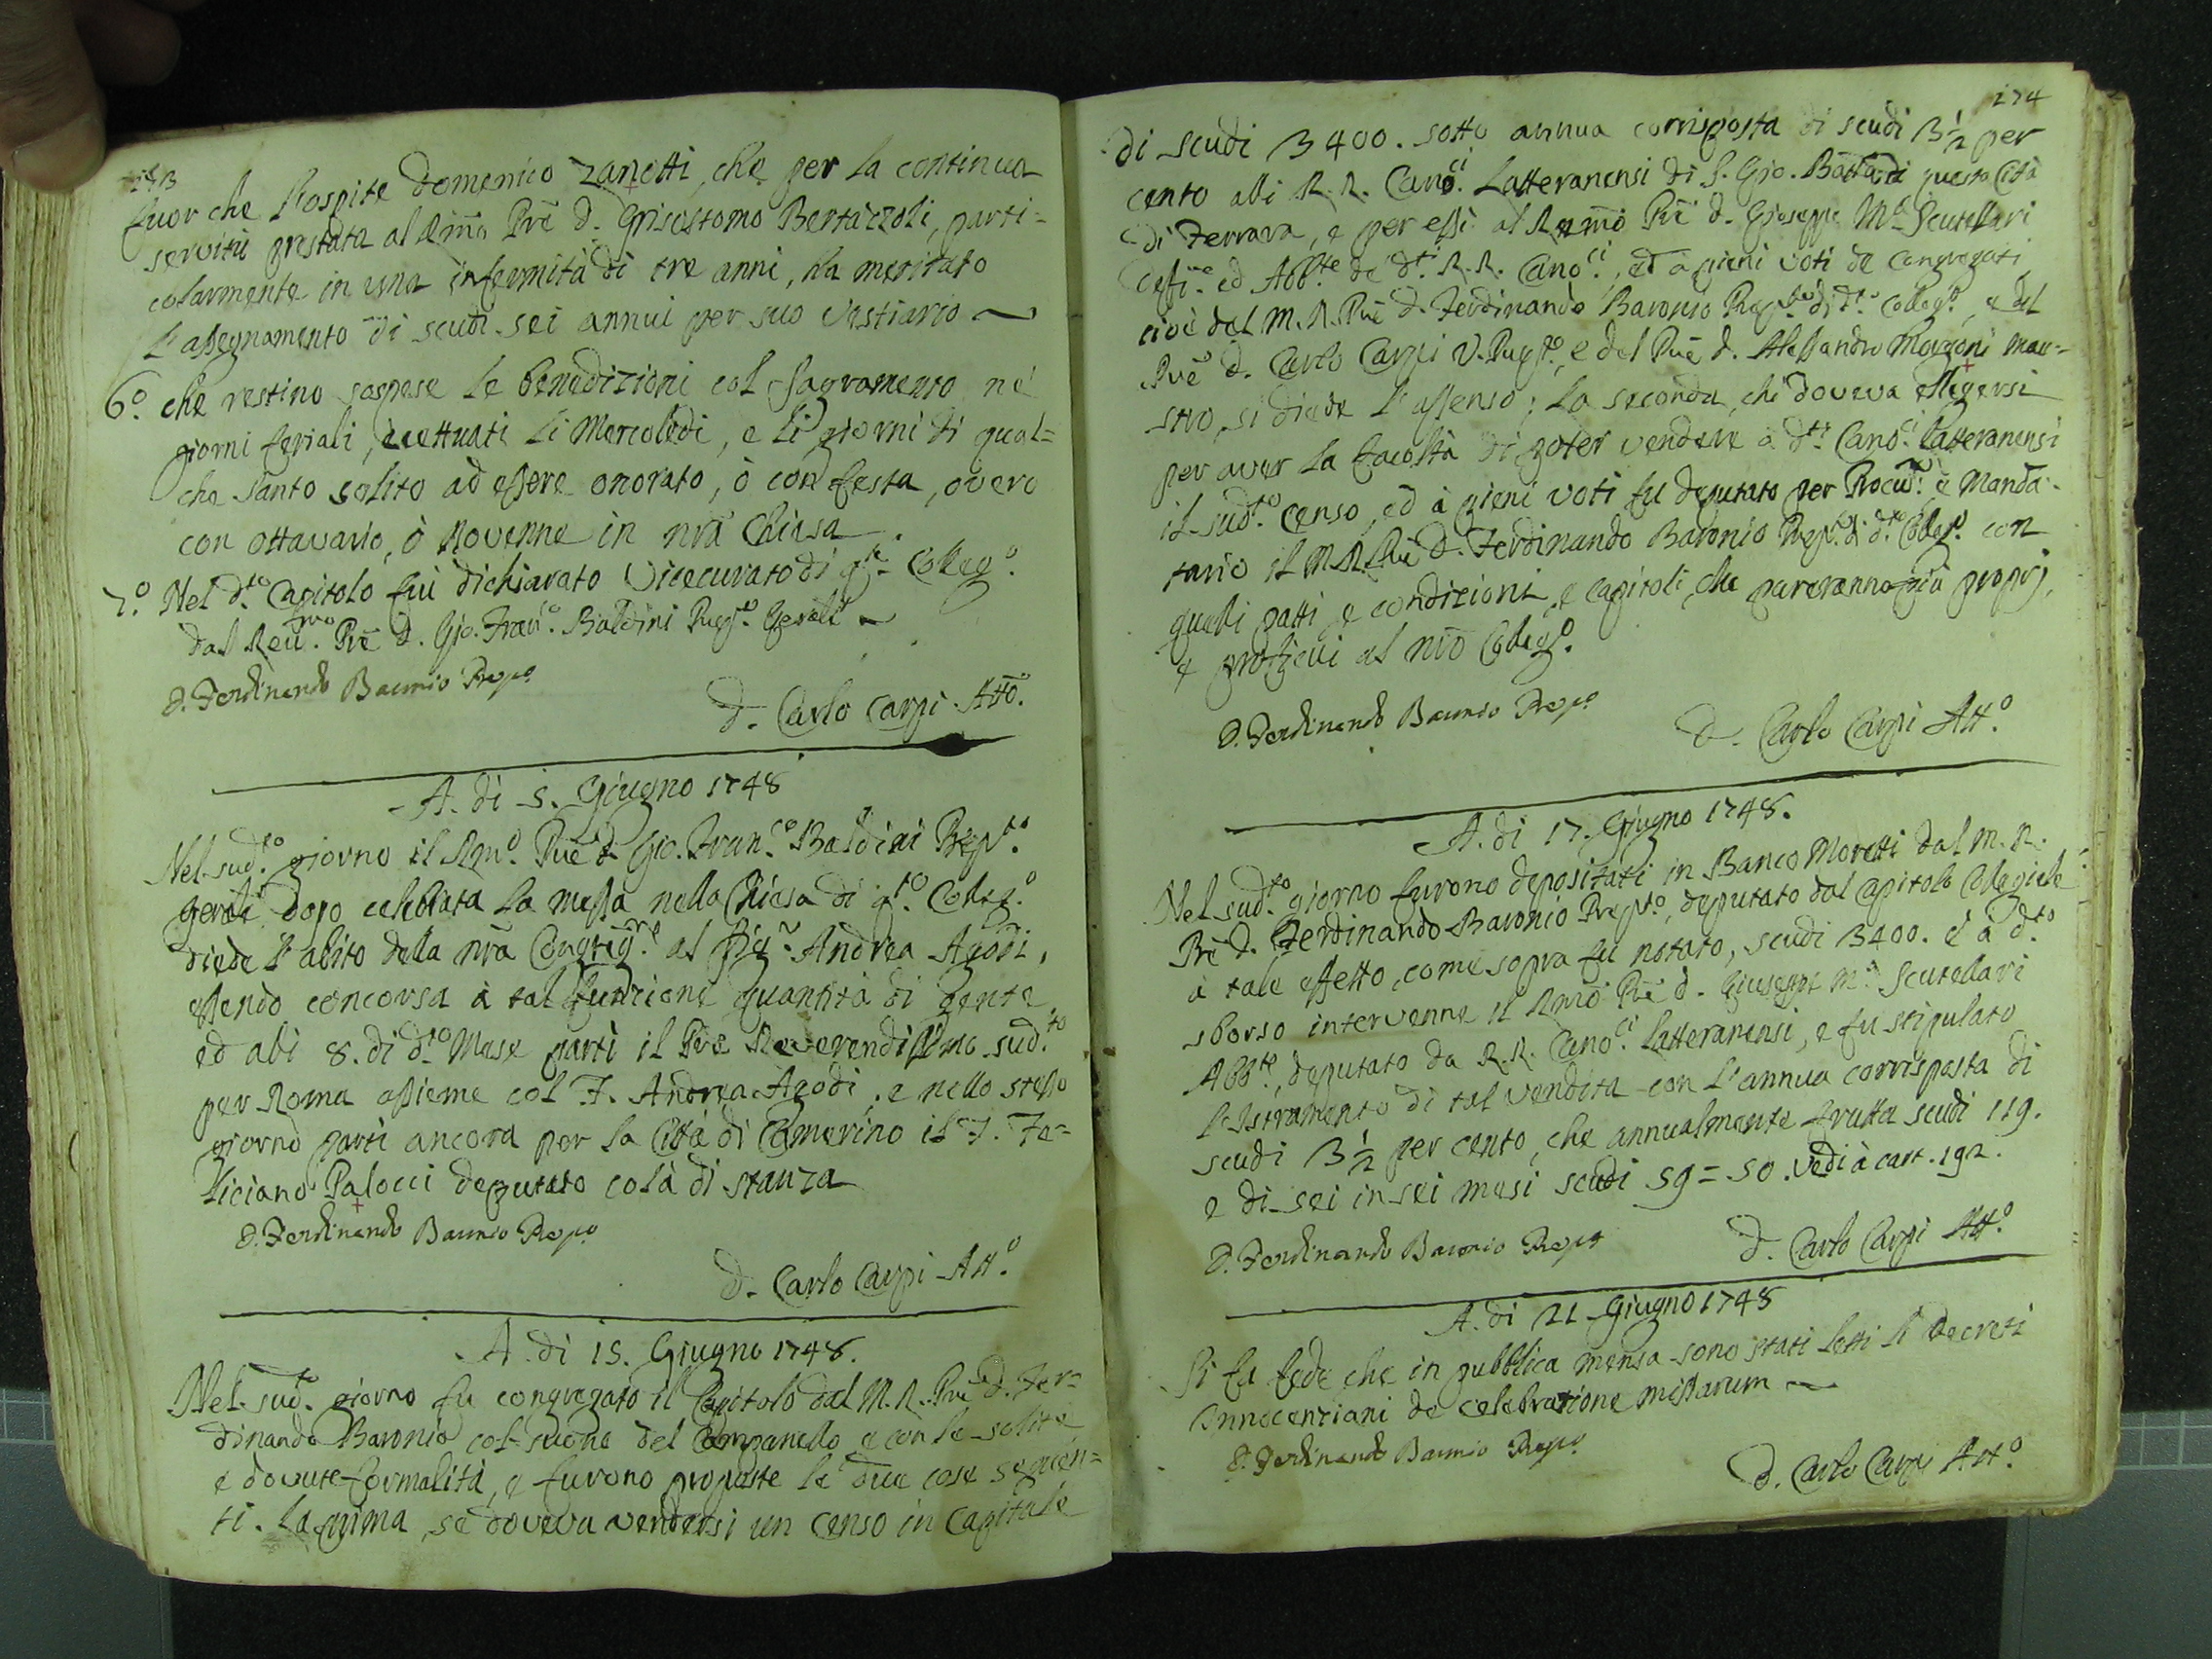 173
fuor che l'ospite Domenico Zanotti, che per la continua
servitù prestata al Rmo Pre D. Grisostomo Bertazzoli, parti=
colarmente in una infermità di tre anni, ha meritato
l'assegnamento di scudi sei annui per suo vestiario
6.º che restino sospese le benedizioni col Sagramento ne
giorni feriali, eccettuati li Mercoledi, e li giorni di qual=
che Santo solito ad essere onorato, ò con festa, overo
con ottavario, ò Novenne in nrã Chiesa
7.º Nel d.to Capitolo fui dichiarato Vicecurato di q.to Colleg.º
dal Reu.mo Prẽ D. Gio. Fran.co Baldini Prep.to Gerãle
D. Ferdinando Baronio Prep.º
D. Carlo Carpi Att.º
A. di 5. Giugno 1748
Nel sud.to giorno il Rm.º Prẽ D. Gio. Fran.co Baldini Prep.to
Gerãle dopo celebrata la messa nella Chiesa di q.to Colleg.º
diede l'abito della nrã Congreg.ne al Sig.r Andrea Agodi,
essendo concorsa à tal funzione quantità di gente
ed alli 8. di d.to Mese partì il Pre Reverendissimo sud.to
per Roma assieme col F. Andrea Agodi, e nello stesso
giorno partì ancora per la Città di Camerino il F. Fe=
liciano Palocci deputato colà di stanza
D. Ferdinando Baronio Prep.º
D. Carlo Carpi Att.º
A. di 15. Giugno 1748.
Nel sud.to giorno fu congregato il Capitolo dal M. R. Prẽ D. Fer=
dinando Baronio col suono del Campanello e con le solite
e dovute formalità, e furono proposte le due cose seguen=
ti. La prima, se doveva vendersi un Censo in Capitale
174
di scudi 3400. sotto annua corrisposta di scudi 3½ per
cento alli R. R. Cano.ci Latteranensi di S. Gio. Batta di questa Città
di Ferrara, e per essi al Rmo Prẽ D. Giuseppe M.a Scutellari
ed Abb.te de d.ti R. R. Cano.ci, ed à pieni voti de Congregati
cioè del M. R. Prẽ D. Ferdinando Baronio Prep.to di d.to Colleg.º, e del
Prẽ D. Carlo Carpi V. Prep.to, e del Prẽ D. Alessandro Morgoni mae=
stro, si diede l'assenso; La seconda, chi doveva ellegersi
per aver la facoltà di poter vendere à d.ti Cano.ci Latteranensi
il sud.to Censo, ed à pieni voti fu deputato per Procur.re, e Manda=
tario il M. R. Prẽ D. Ferdinando Baronio Prep.to di d.to Colleg.º con
quelli patti, e condizioni, e capitoli, che pareranno più proprj,
e proficui al nrõ Colleg.º
D. Ferdinando Baronio Prep.º
D. Carlo Carpi Att.º
A. di 17. Giugno 1748.
Nel sud.to giorno furono depositati in Banco Moretti dal M. R.
Prẽ D. Ferdinando Baronio Prep.to, deputato dal Capitolo Collegiale
à tale effetto, come sopra fu notato, scudi 3400. e à d.to
sborso intervenne il Rmõ Prẽ D. Giuseppe M.a Scutellari
Abb.te, deputato da R. R. Cano.ci Latteranensi, e fu stipulato
l'Istramento di tal vendita con l'annua corrisposta di
scudi 3½ per cento, che annualmente frutta scudi 119.
e di sei in sei mesi scudi 59=50. Vedi à cart. 192.
D. Ferdinando Baronio Prep.º
D. Carlo Carpi Att.º
A. di 21. Giugno 1748
Si fa fede che in pubblica mensa sono stati letti li Decreti
Innocenziani de celebratione missarum
D. Ferdinando Baronio Prep.º
D. Carlo Carpi Att.º